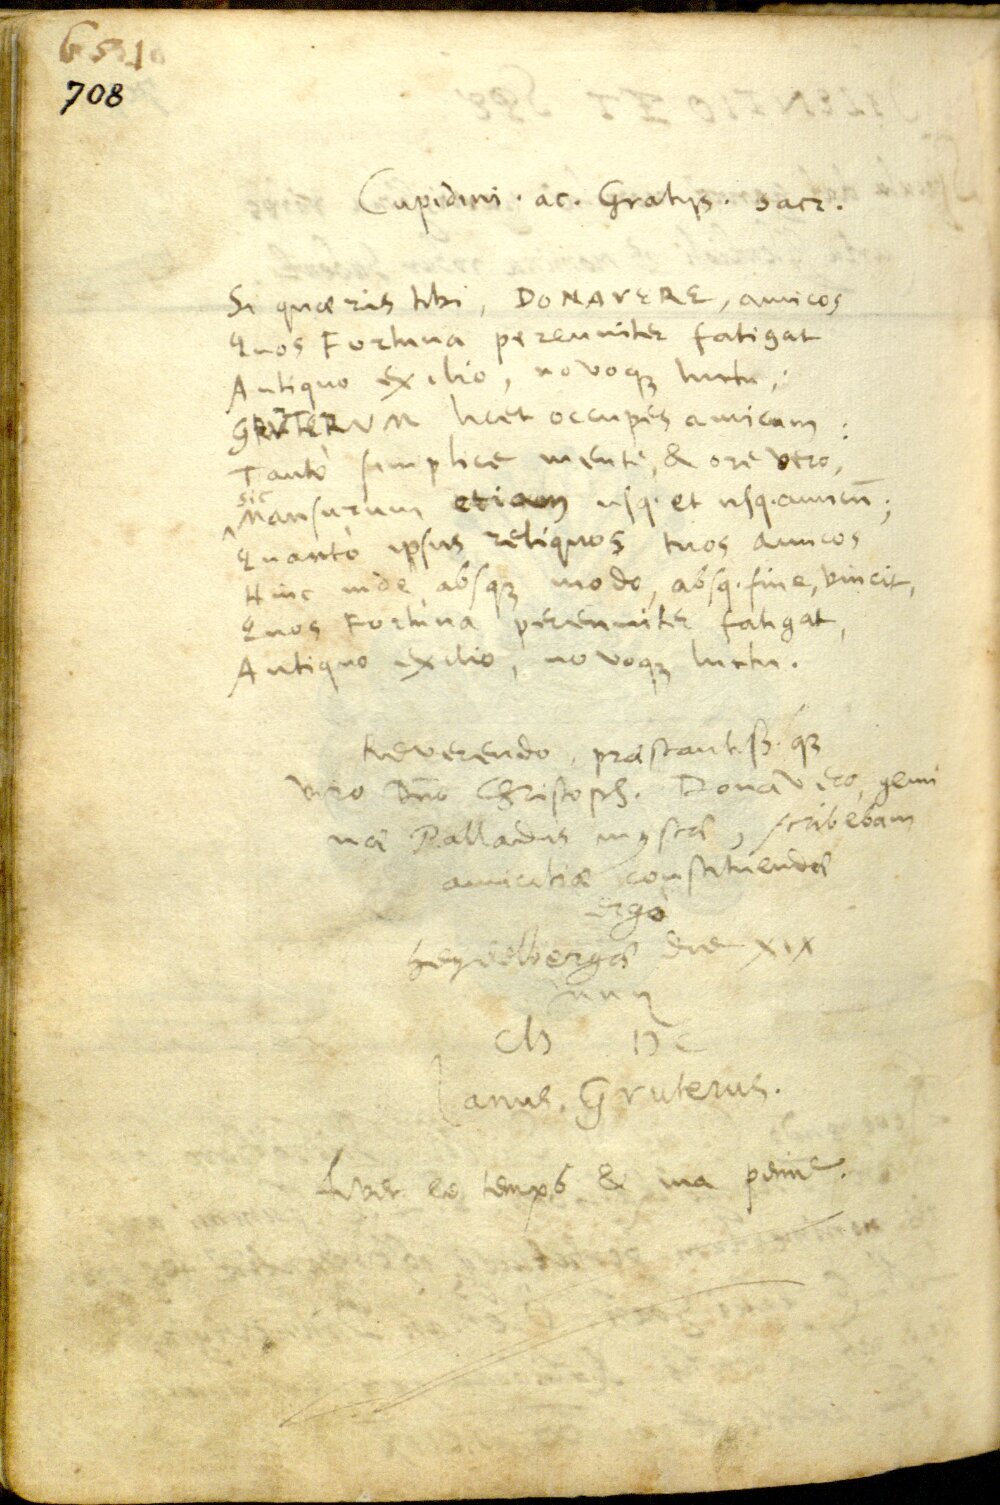 708
Cupidini · ac · Gratijs · sacr.
Si quæris tibi, DONAVERE, amicos
Quos Fortuna perenniter fatigat
Antiquo exilio, novoqꝫ luctu;
GRVTERVM licet occupes amicum:
Tantò simplice mente, & ore vero,
sic
Mansurum etiam usq. et usq. amicū;
Quantò ipsus reliquos tuos amicos
Hinc inde, absqꝫ modo, absq. fine, vincit,
Quos Fortuna perenniter fatigat,
Antiquo exilio, novoqꝫ luctu.
Reverendo, præstantiss. qꝫ
viro Dño Christoph. Donavero, gemi
næ Palladis mystæ, scribebam
amicitiæ constituendæ
ergò
Heydelbergæ die XIX
Junij
CIↃ IↃC
Janus Gruterus.
Avec le temps & ma peine.